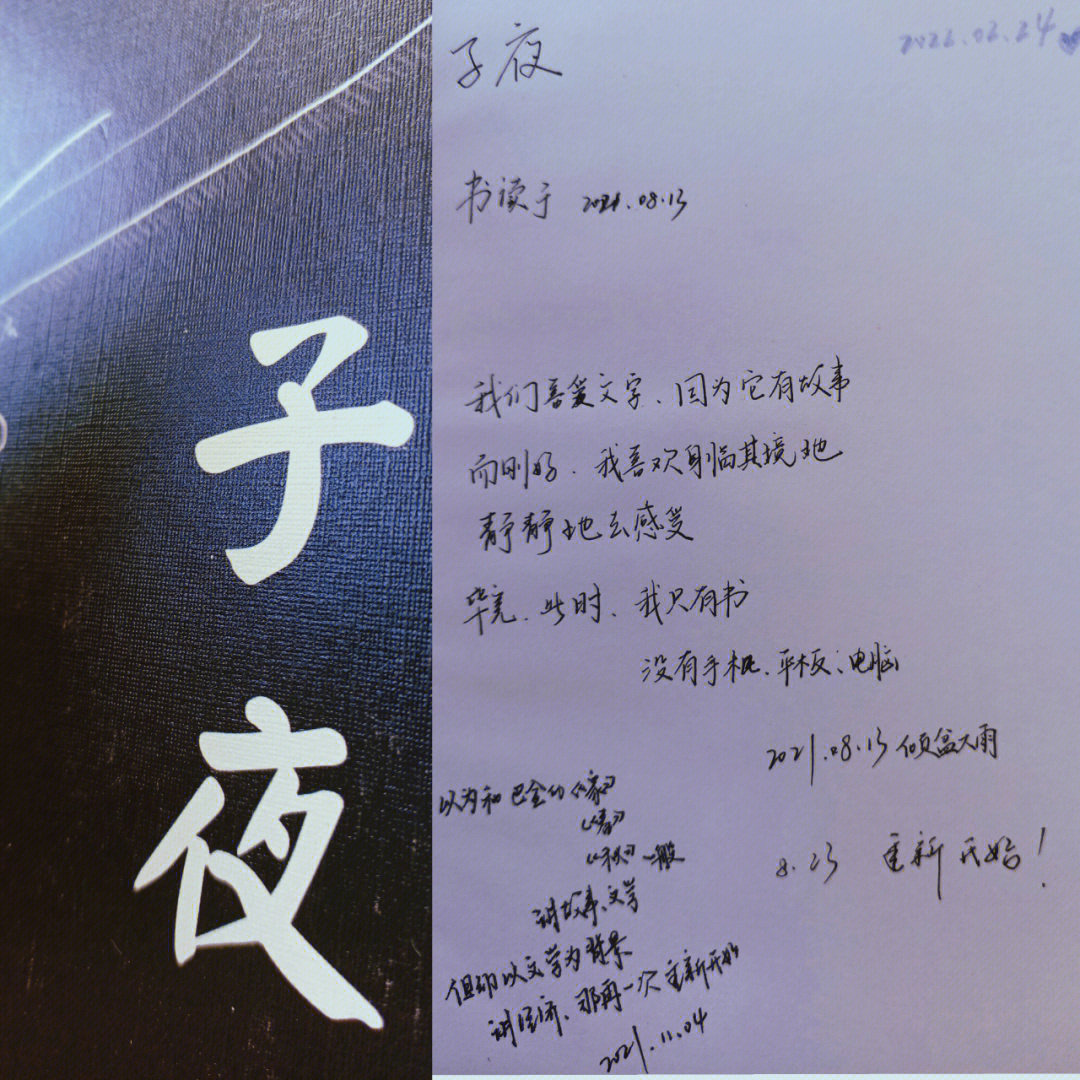 子夜
子夜
2022.02.24
书读于 2021.08.13
我们喜爱文字、因为它有故事
而刚好.我喜欢身临其境地
静静地去感受
毕竟.此时、我只有书
没有手机、平板、电脑
2021.08.13 倾盆大雨
8.23 重新开始!
以为和巴金的《家》
《春》
《秋》一般
讲故事、文学
但却以文学为背景
讲经济、那再一次重新开始
2021.11.04